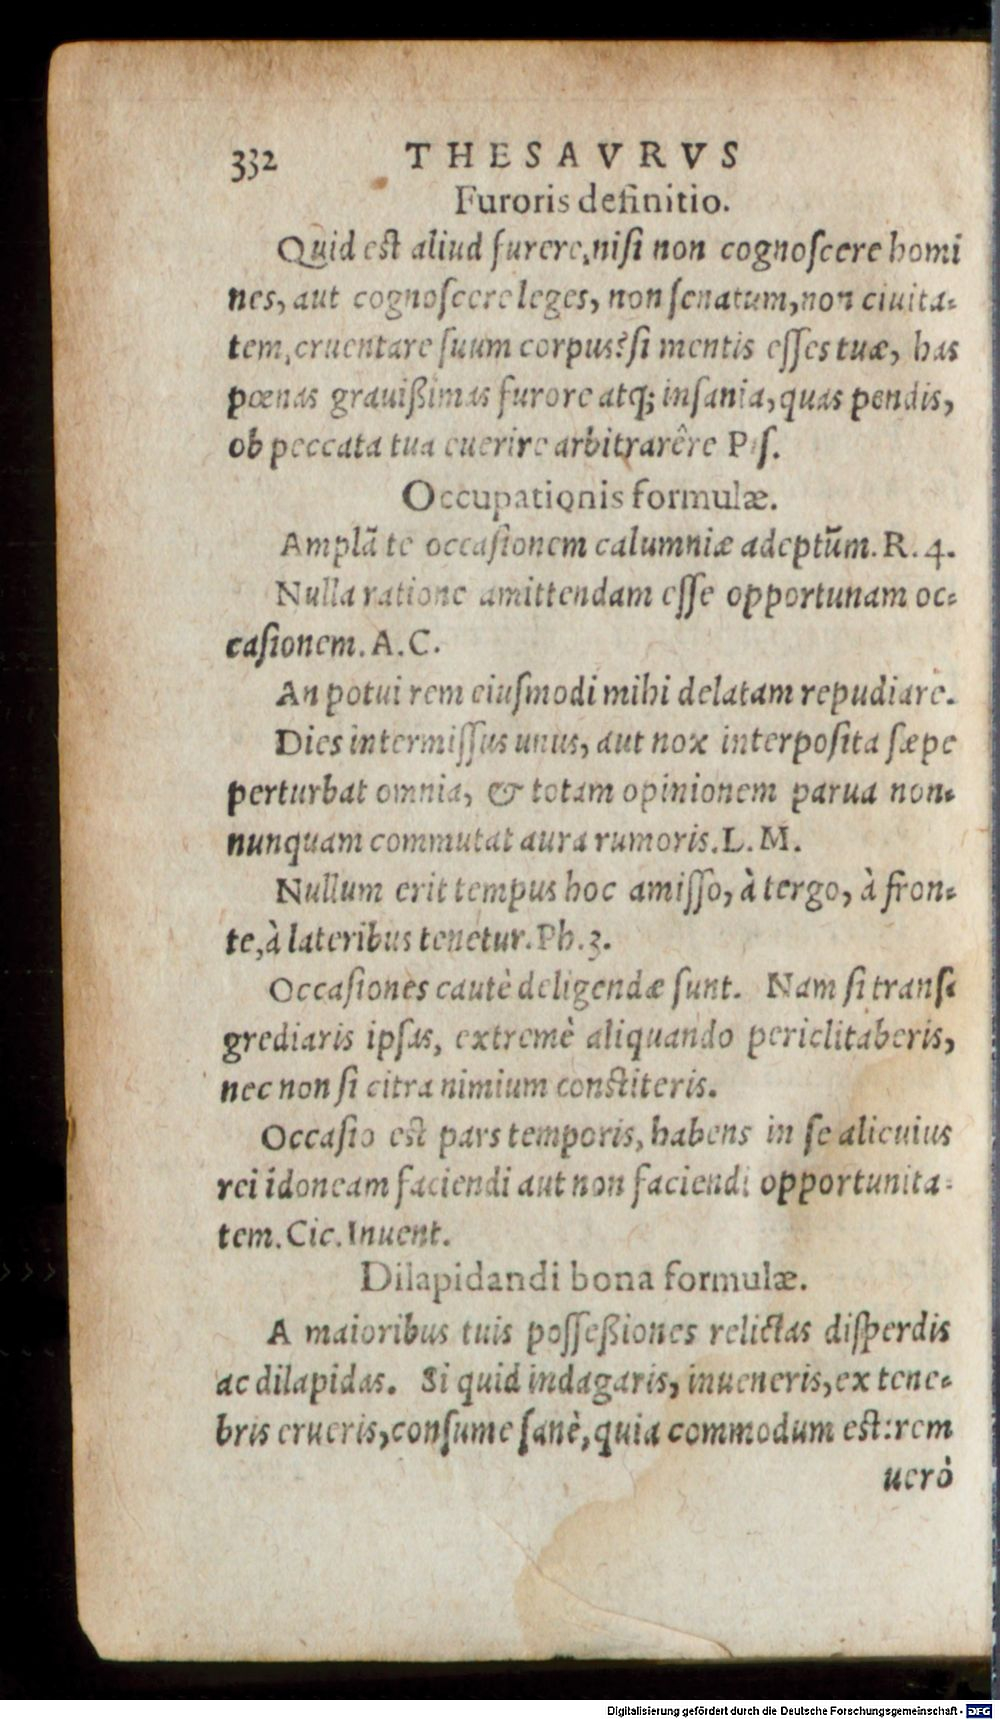 332 THESAVRVS
Furoris definitio.
Quid est aliud furere, nisi non cognoscere homi
nes, aut cognoscere leges, non senatum, non ciuita-
tem, cruentare suum corpus? si mentis esses tuæ, has
pœnas grauißimas furore atq; insania, quas pendis,
ob peccata tua euerire arbitrarêre Pis.
Occupationis formulæ.
Amplã te occasionem calumniæ adeptũm. R. 4.
Nulla ratione amittendam esse opportunam oc-
casionem. A. C.
An potui rem eiusmodi mihi delatam repudiare.
Dies intermissus unus, aut nox interposita sæpe
perturbat omnia, & totam opinionem parua non-
nunquam commutat aura rumoris. L. M.
Nullum erit tempus hoc amisso, à tergo, à fron-
te, à lateribus tenetur. Ph. 3.
Occasiones cautè deligendæ sunt. Nam si trans-
grediaris ipsas, extremè aliquando periclitaberis,
nec non si citra nimium constiteris.
Occasio est pars temporis, habens in se alicuius
rei idoneam faciendi aut non faciendi opportunita-
tem. Cic. Inuent.
Dilapidandi bona formulæ.
A maioribus tuis possessiones relictas disperdis
ac dilapidas. Si quid indagaris, inueneris, ex tene-
bris erueris, consume sanè, quia commodum est: rem
uerò
Digitalisierung gefördert durch die Deutsche Forschungsgemeinschaft - DFG